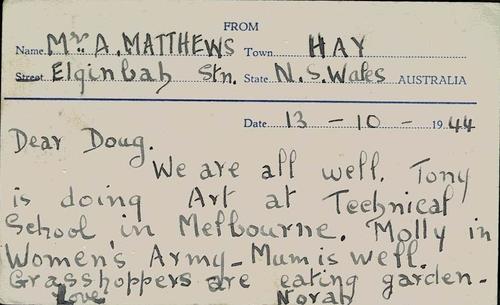 FROM
Name Mrs. A. MATTHEWS Town HAY
Street Elginbah Stn. State N.S.Wales AUSTRALIA
Date 13 - 10 - 1944
Dear Doug.
We are all well. Tony
is doing Art at Technical
School in Melbourne. Molly in
Women's Army - Mum is well.
Grasshoppers are eating garden -
Love Norah